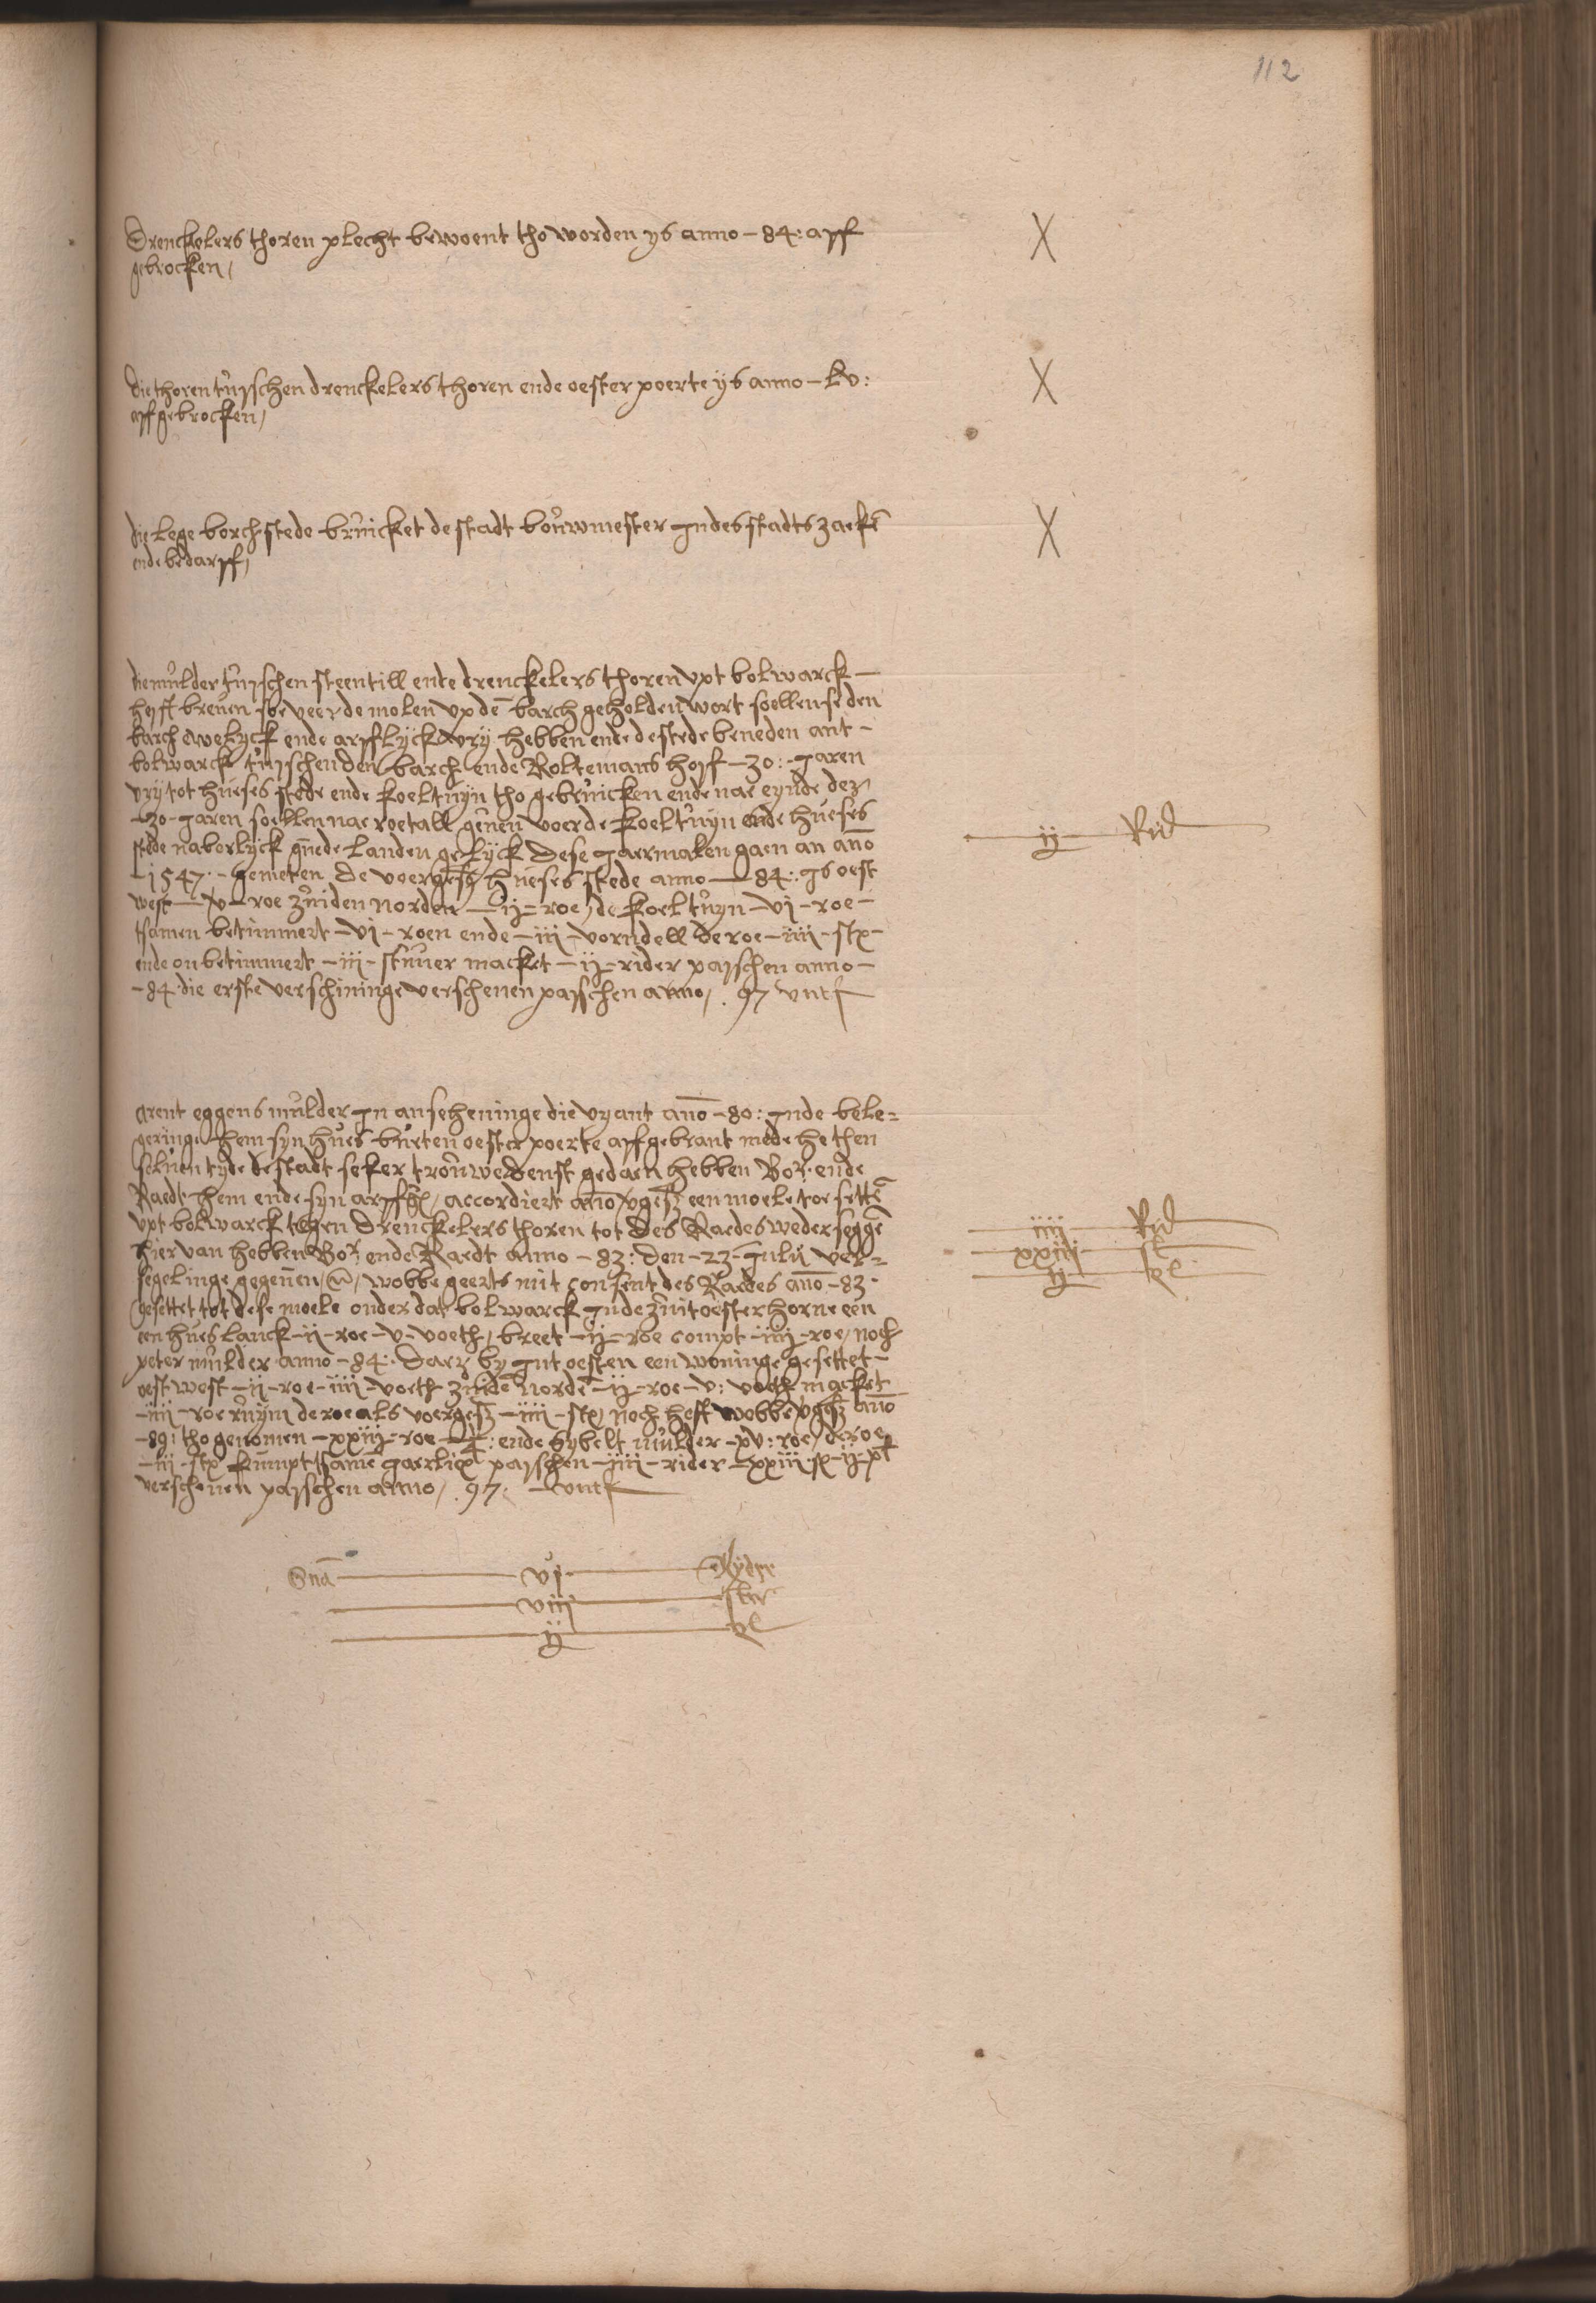 112
Drenckelers thoren plecht bewoent tho worden ys anno - 84: aff
gebrocken /
X
die thoren tuisschen drenckelers thoren ende oester poerte ys anno - Lv:
affgebrocken /
X
die lege borchstede bruicket de stadt bouwmester Jn des stadts zaken
ende bedarff /
X
die mulder tuisschen steentill ende drenckelers thoren vpt bolwarck -
hefft breuen soe veer de molen vp den barch geholden wort soellen se den
barch ewelyck ende arfflyck vry hebben ende de stede beneden ant -
bolwarck tuisschen den barch ende Roltemans hoff - 30: - Jaren
vry tot hueses stede ende koeltuyn tho gebruicken ende nae eynde der
- 30 - Jaren soellen nae roetall geuen voer de koeltuyn ende hueses
stede naberlyck gelyck Dese Jaermalen gaen an ano
- 1547 - gemeten de voergesz hueses stede anno - 84: Js oest
west - v - roe zuiden norden - ij = roe / de koeltuyn - vj - roe -
tsamen betimmert - vj - roen ende - iij - vorndell de roe - iiij - stx -
ende onbetimmert - iij - stuuer macket - ij = rider paisschen anno -
- 84 · die erste verschininge verschenen paisschen anno / . 97 vntf
ij Rid
Arent eggens mulder Jn anseheninge die vyant ano - 80: Jnde bele =
geringe hem syn hues buten oester poerte affgebrant mede he then
seluen tyde de stadt seker trouwe denst gedaen hebben Bor. ende
Raedt hem ende syn arff / accordiert ano vgesz een moele toe setten
vpt bolwarck tegen Drenckelers thoren tot des Raedes wederseggen
hier van hebben Bor ende Raedt anno - 83: den - 23 - Julij ver =
segelinge gegeuen / wobbe geerts mit consent des Raedes ano - 83 ·
gesettet tot dese moele onder dat bolwarck Jnde zuitoesterhorne een
een hues lanck - ij - roe - v - voeth / breet - ij = roe compt - iiij - roe / noch
peter mulder anno - 84: Daer by Jnt oesten een woninge gesettet -
oest west - ij - roe - iiij - voeth zuiden norden - ij = roe - v: voeth macket
- iiij - roe ruym de roe als voergesz - iiij - stx / noch heft wobbe vgesz ano
- 89: tho genomen - xxiij = roe : ende Sybelt mulder - xv: roe / de roe
- iij - stx kumpt tsame Jaerlicx paisschen - iiij - rider - xxiiij st - ij - pl
verschenen paisschen anno / . 97 · vntf
iiij Rid
xxiiij st
ij pl
Sma vj Ryder
viij stuuer
ij pl